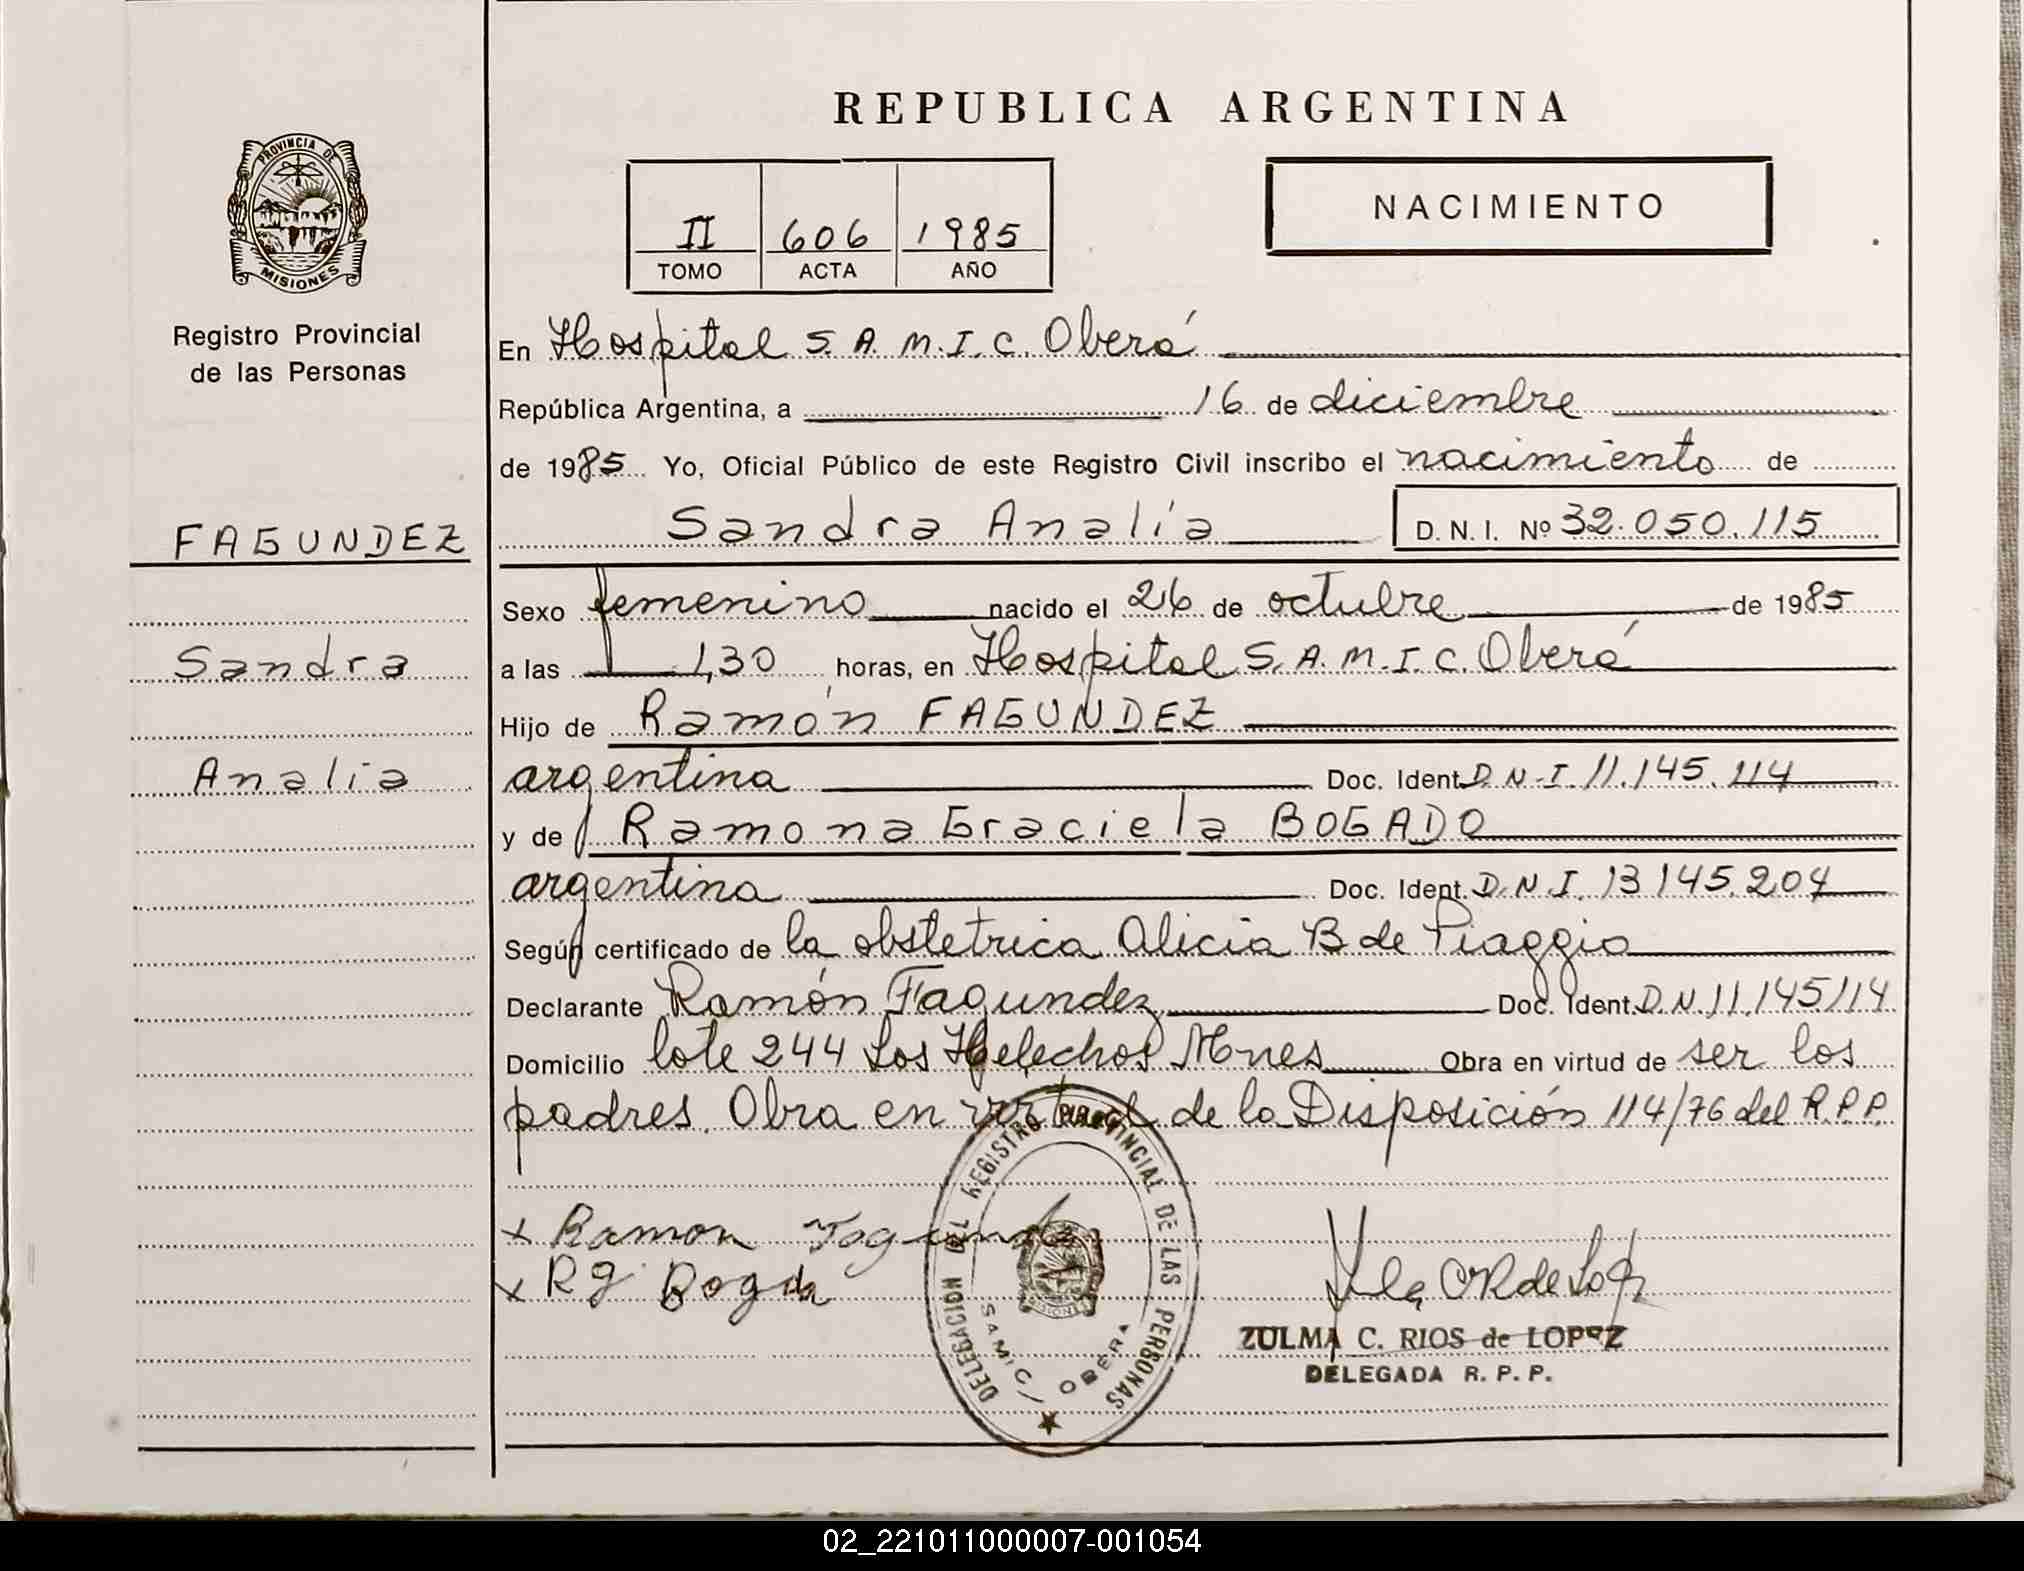 REPUBLICA ARGENTINA
PROVINCIA DE
MISIONES
Registro Provincial
de las Personas
II 606 1985
TOMO ACTA AÑO
NACIMIENTO
En Hospital S.A.M.I.C. Oberá
República Argentina, a 16 de diciembre
de 1985 Yo, Oficial Público de este Registro Civil inscribo el nacimiento de
Sandra Analía D.N.I. Nº 32.050.115
FAGUNDEZ
Sandra
Analia
Sexo femenino nacido el 26 de octubre de 1985
a las 1,30 horas, en Hospital S.A.M.I.C. Oberá
Hijo de Ramón FAGUNDEZ
argentina Doc. Ident. D.N.I. 11.145.114
y de Ramona Graciela BOGADO
argentina Doc. Ident. D.N.I. 13.145.204
Según certificado de la obstetrica Alicia B de Piaggio
Declarante Ramón Fagundez Doc. Ident. D.N. 11.145114
Domicilio lote 244 Los Helechos Mnes Obra en virtud de ser los
padres. Obra en virtud de la Disposición 114/76 del R.P.P.
x Ramon
x Rg
DELEGACION DEL REGISTRO PROVINCIAL DE LAS PERSONAS
SAMIC / OBERA
ZULMA C. RIOS de LOPEZ
DELEGADA R. P. P.
02_221011000007-001054